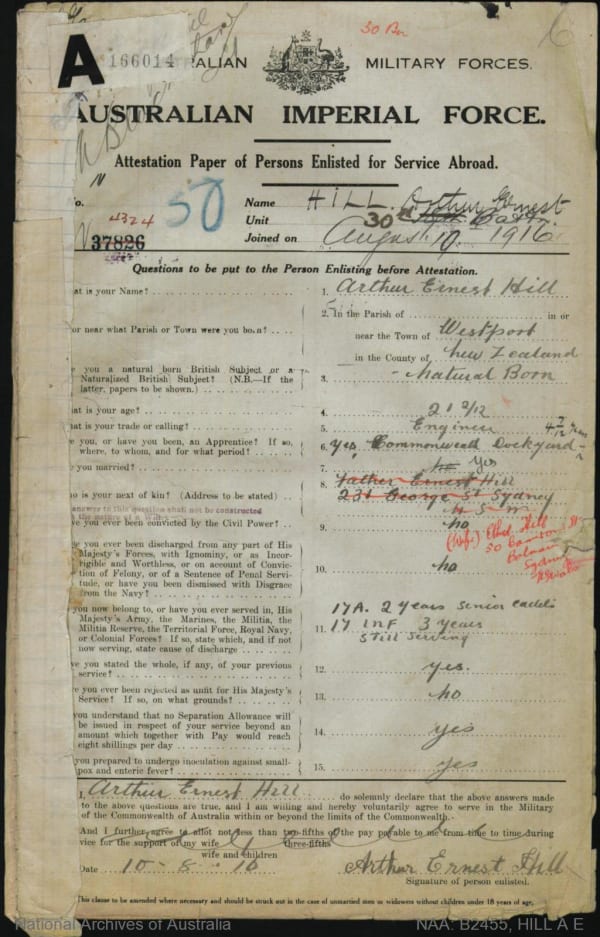 30 Bn
A 166014 RALIAN MILITARY FORCES.
AUSTRALIAN IMPERIAL FORCE.
Attestation Paper of Persons Enlisted for Service Abroad.
No. 4324
37826
50
Name HILL. Arthur Ernest
Unit 30th Battn
Joined on August. 17. 1916
Questions to be put to the Person Enlisting before Attestation.
at is your Name? 1. Arthur Ernest Hill
2. In the Parish of in or
or near what Parish or Town were you born? near the Town of Westport
in the County of New Zealand
e you a natural born British Subject or a
Naturalized British Subject? (N.B.—If the
latter, papers to be shown.) 3. Natural Born
at is your age? 4. 21 2/12
at is your trade or calling? 5. Engineer
e you, or have you been, an Apprentice? If so,
where, to whom, and for what period? 6. Yes, Commonwealth Dockyard 4 7/12 Years
e you married? 7. no Yes
o is your next of kin? (Address to be stated) 8. father Ernest Hill
231 George St Sydney
N S W
answer to this question shall not be constructed
(Wife) Ethel Hill
Balmain
Sydney
ve you ever been convicted by the Civil Power? 9. no
ve you ever been discharged from any part of His
Majesty's Forces, with Ignominy, or as Incor-
rigible and Worthless, or on account of Convic-
tion of Felony, or of a Sentence of Penal Servi-
tude, or have you been dismissed with Disgrace
from the Navy? 10. no
you now belong to, or have you ever served in, His
Majesty's Army, the Marines, the Militia, the
Militia Reserve, the Territorial Force, Royal Navy,
or Colonial Forces? If so, state which, and if not
now serving, state cause of discharge 11. 17A. 2 Years Senior cadets
17 INF 3 years
Still serving
ve you stated the whole, if any, of your previous
service? 12. yes.
ve you ever been rejected as unfit for His Majesty's
Service? If so, on what grounds? 13. no
you understand that no Separation Allowance will
be issued in respect of your service beyond an
amount which together with Pay would reach
eight shillings per day 14. yes
you prepared to undergo inoculation against small-
pox and enteric fever? 15. yes
I, Arthur Ernest Hill do solemnly declare that the above answers made
to the above questions are true, and I am willing and hereby voluntarily agree to serve in the Military
of the Commonwealth of Australia within or beyond the limits of the Commonwealth.
And I further agree to allot not less than two-fifths of the pay payable to me from time to time during
three-fifths
vice for the support of my wife
wife and children
Date 10-8-16 Arthur Ernest Hill
Signature of person enlisted.
This clause to be amended where necessary and should be struck out in the case of unmarried men or widowers without children under 18 years of age.
National Archives of Australia NAA: B2455, HILL A E